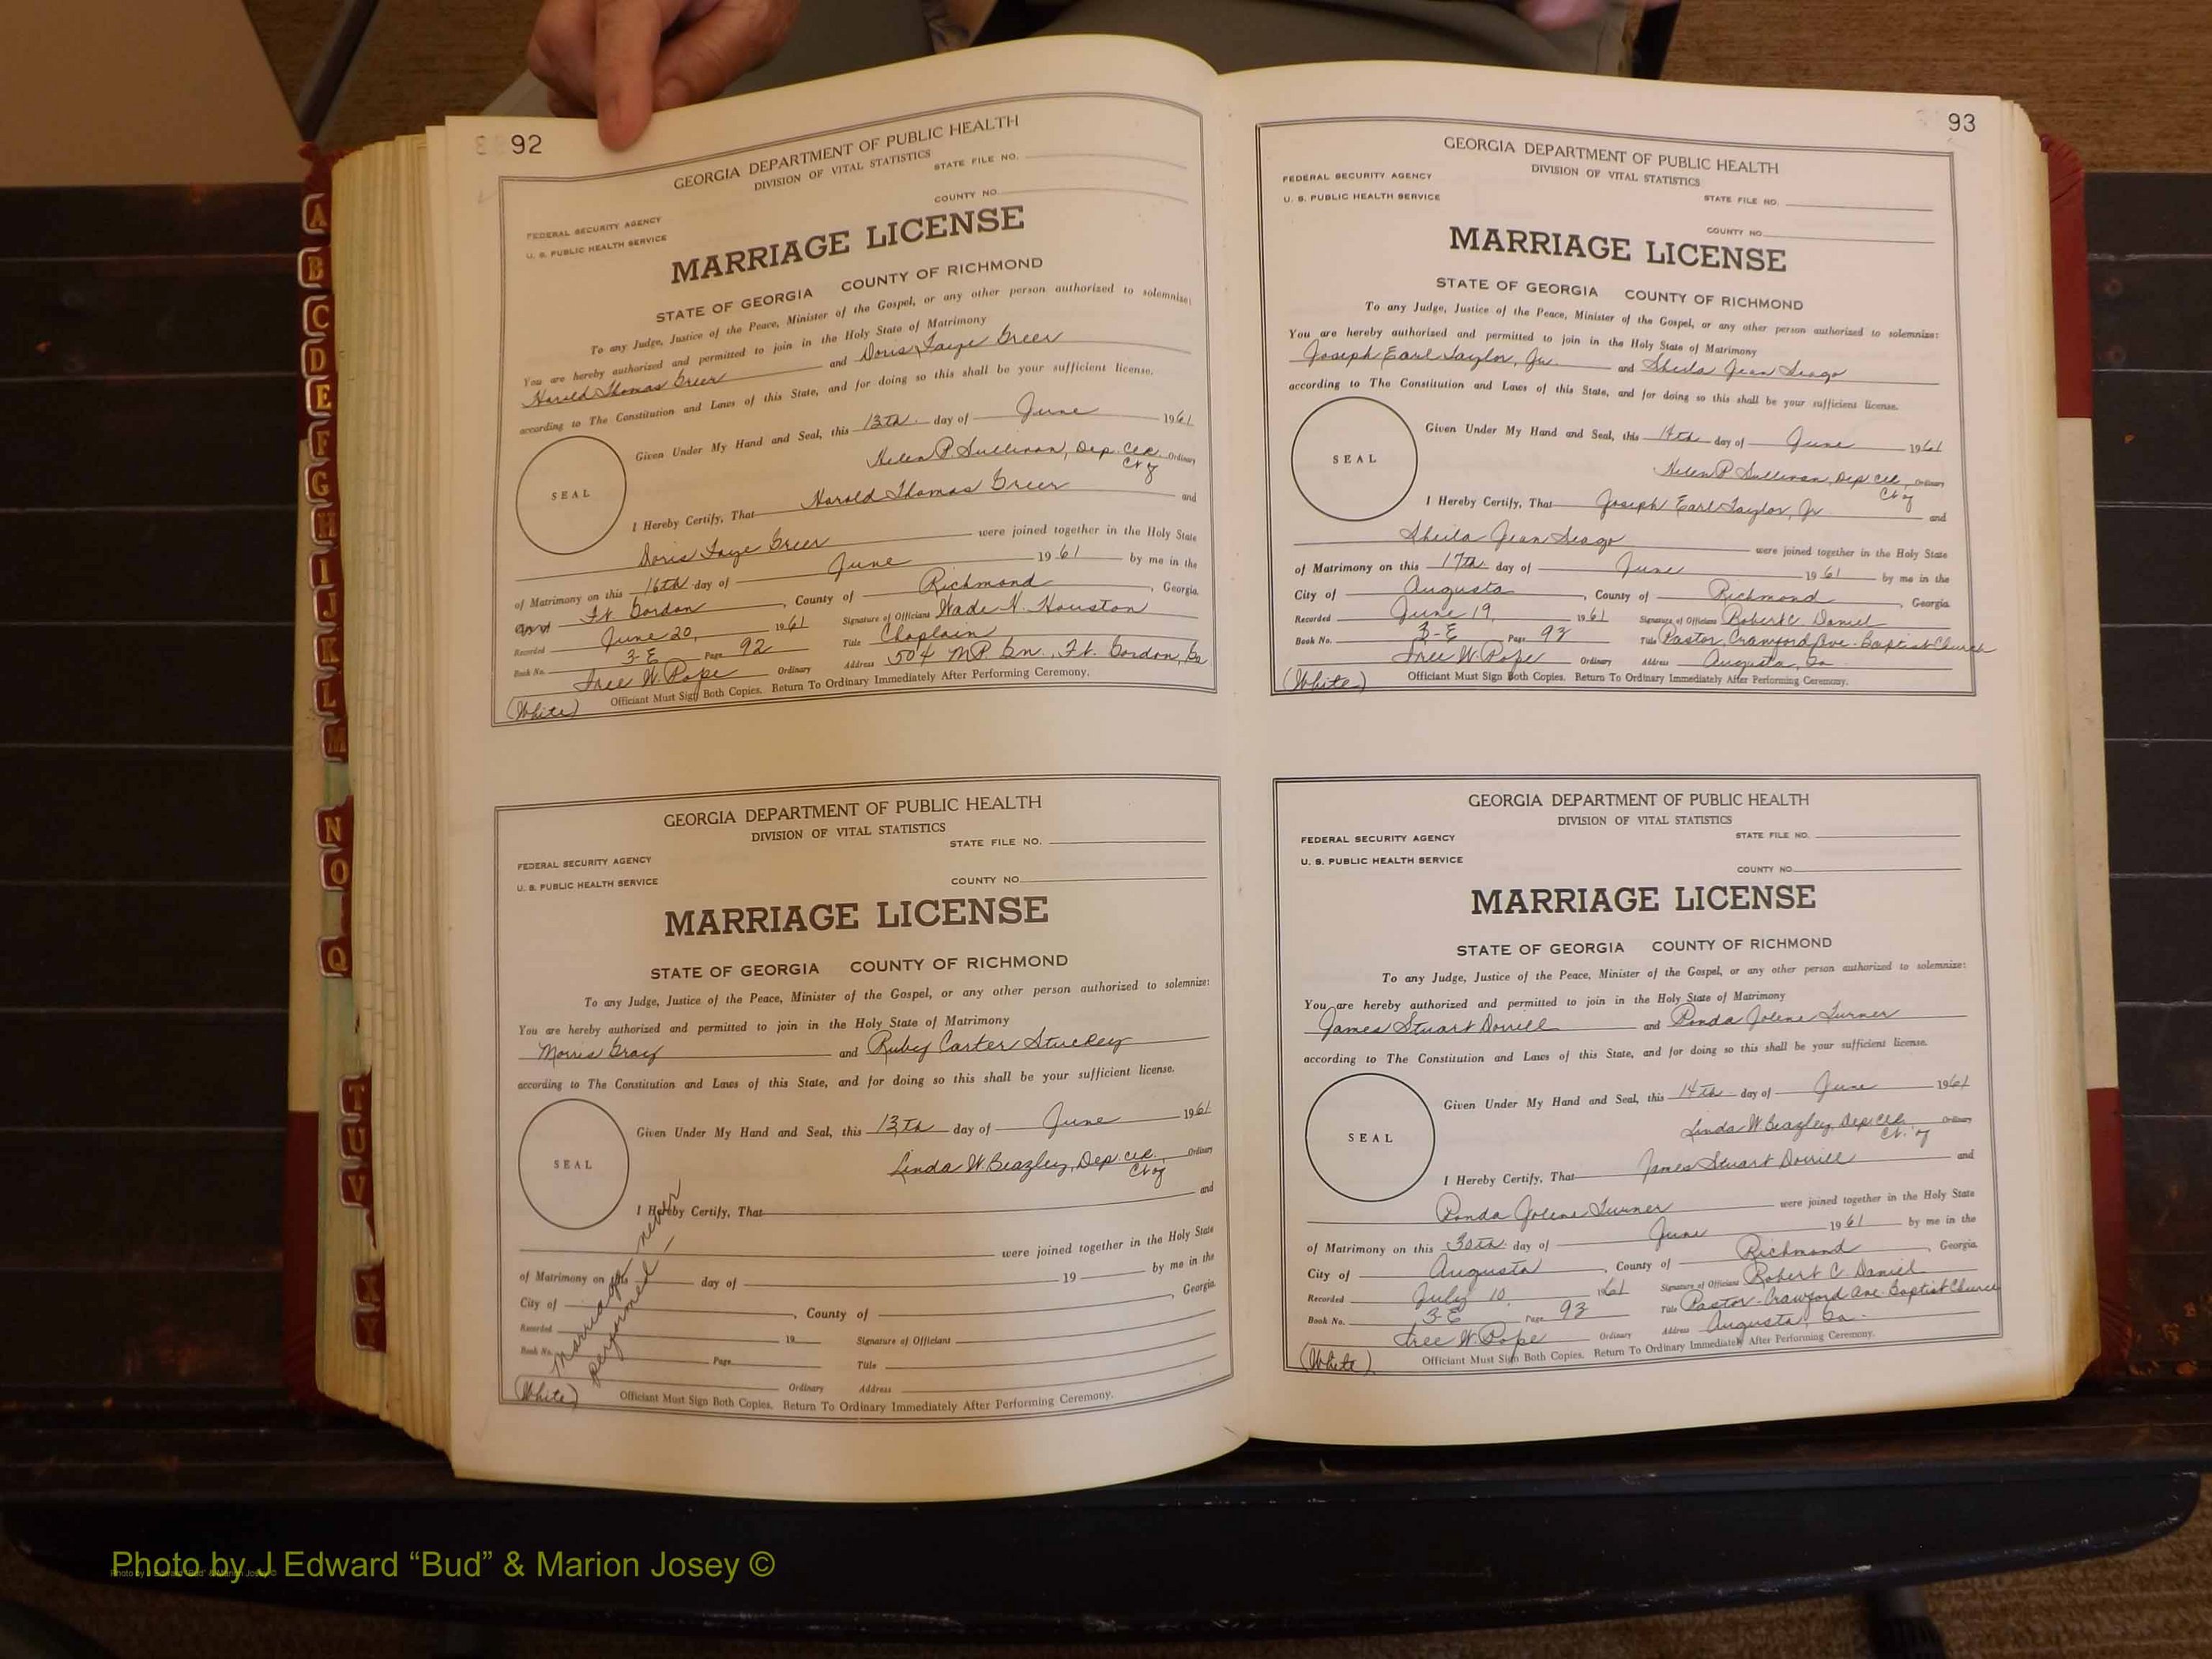 A
B
C
D
E
F
G
H
I
J
K
L
M
N
O
Q
T
U
V
X
Y
92
GEORGIA DEPARTMENT OF PUBLIC HEALTH
DIVISION OF VITAL STATISTICS
STATE FILE NO.
COUNTY NO.
FEDERAL SECURITY AGENCY
U. S. PUBLIC HEALTH SERVICE
MARRIAGE LICENSE
STATE OF GEORGIA COUNTY OF RICHMOND
To any Judge, Justice of the Peace, Minister of the Gospel, or any other person authorized to solemnize:
You are hereby authorized and permitted to join in the Holy State of Matrimony
Harold Thomas Greer and Doris Faye Greer
according to The Constitution and Laws of this State, and for doing so this shall be your sufficient license.
SEAL
Given Under My Hand and Seal, this 13th day of June 1961
Helen P. Sullivan, Dep. Clk. Ordinary
Ct of
I Hereby Certify, That Harold Thomas Greer and
Doris Faye Greer were joined together in the Holy State
of Matrimony on this 16th day of June 1961 by me in the
City of Ft. Gordon, County of Richmond, Georgia.
Recorded June 20, 1961 Signature of Officiant Wade H. Houston
Book No. 3-E Page 92 Title Chaplain
Free W. Pope Ordinary Address 504 M.P. Bn., Ft. Gordon, Ga
(White) Officiant Must Sign Both Copies. Return To Ordinary Immediately After Performing Ceremony.
GEORGIA DEPARTMENT OF PUBLIC HEALTH
DIVISION OF VITAL STATISTICS
STATE FILE NO.
FEDERAL SECURITY AGENCY
U. S. PUBLIC HEALTH SERVICE
COUNTY NO.
MARRIAGE LICENSE
STATE OF GEORGIA COUNTY OF RICHMOND
To any Judge, Justice of the Peace, Minister of the Gospel, or any other person authorized to solemnize:
You are hereby authorized and permitted to join in the Holy State of Matrimony
Morris Gray and Ruby Carter Stuckey
according to The Constitution and Laws of this State, and for doing so this shall be your sufficient license.
SEAL
Given Under My Hand and Seal, this 13th day of June 1961
Linda W. Beazley, Dep. Clk. Ordinary
Ct of
I Hereby Certify, That and
were joined together in the Holy State
of Matrimony on this day of 19 by me in the
City of , County of , Georgia.
Recorded 19 Signature of Officiant
Book No. Page Title
Ordinary Address
Marriage never
performed
(White) Officiant Must Sign Both Copies. Return To Ordinary Immediately After Performing Ceremony.
93
GEORGIA DEPARTMENT OF PUBLIC HEALTH
DIVISION OF VITAL STATISTICS
FEDERAL SECURITY AGENCY
U. S. PUBLIC HEALTH SERVICE
STATE FILE NO.
COUNTY NO.
MARRIAGE LICENSE
STATE OF GEORGIA COUNTY OF RICHMOND
To any Judge, Justice of the Peace, Minister of the Gospel, or any other person authorized to solemnize:
You are hereby authorized and permitted to join in the Holy State of Matrimony
Joseph Earl Taylor, Jr. and Sheila Jean Seago
according to The Constitution and Laws of this State, and for doing so this shall be your sufficient license.
SEAL
Given Under My Hand and Seal, this 14th day of June 1961
Helen P. Sullivan, Dep. Clk. Ordinary
Ct of
I Hereby Certify, That Joseph Earl Taylor, Jr. and
Sheila Jean Seago were joined together in the Holy State
of Matrimony on this 17th day of June 1961 by me in the
City of Augusta, County of Richmond, Georgia
Recorded June 19, 1961 Signature of Officiant Robert C Daniel
Book No. 3-E Page 93 Title Pastor, Crawford Ave. Baptist Church
Free W. Pope Ordinary Address Augusta, Ga
(White) Officiant Must Sign Both Copies. Return To Ordinary Immediately After Performing Ceremony.
GEORGIA DEPARTMENT OF PUBLIC HEALTH
DIVISION OF VITAL STATISTICS
FEDERAL SECURITY AGENCY
STATE FILE NO.
U. S. PUBLIC HEALTH SERVICE
COUNTY NO.
MARRIAGE LICENSE
STATE OF GEORGIA COUNTY OF RICHMOND
To any Judge, Justice of the Peace, Minister of the Gospel, or any other person authorized to solemnize:
You are hereby authorized and permitted to join in the Holy State of Matrimony
James Stuart Dorrill and Ronda Jolene Turner
according to The Constitution and Laws of this State, and for doing so this shall be your sufficient license.
SEAL
Given Under My Hand and Seal, this 14th day of June 1961
Linda W Beazley, Dep Clk. Ordinary
Ct. of
I Hereby Certify, That James Stuart Dorrill and
Ronda Jolene Turner were joined together in the Holy State
of Matrimony on this 30th day of June 1961 by me in the
City of Augusta, County of Richmond, Georgia
Recorded July 10, 1961 Signature of Officiant Robert C Daniel
Book No. 3-E Page 93 Title Pastor - Crawford Ave. Baptist Church
Free W. Pope Ordinary Address Augusta, Ga.
(White) Officiant Must Sign Both Copies. Return To Ordinary Immediately After Performing Ceremony.
Photo by J Edward “Bud” & Marion Josey ©
Photo by J Edward "Bud" & Marion Josey ©